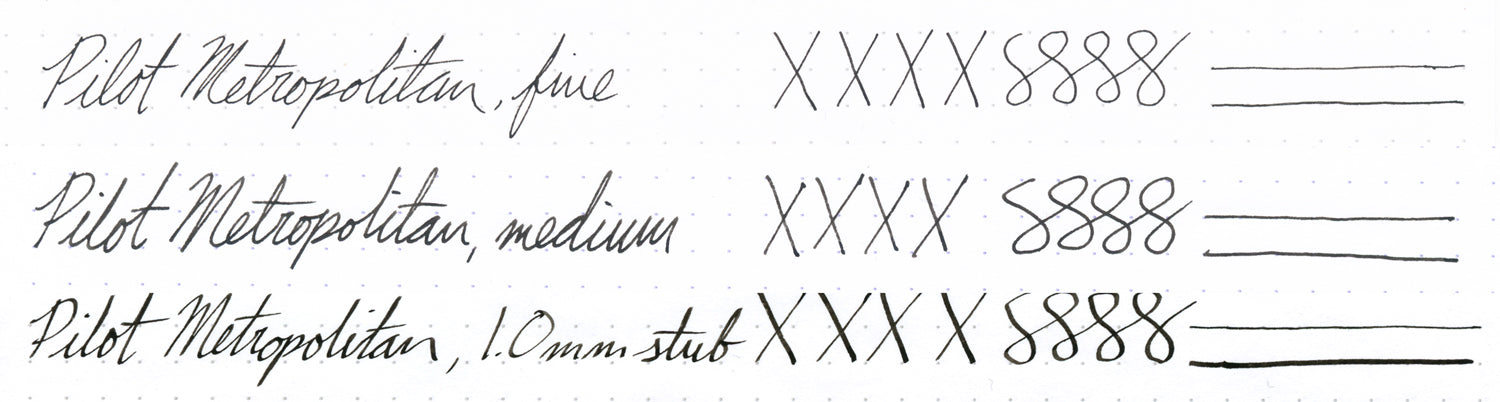 Pilot Metropolitan, fine X X X X 8888
Pilot Metropolitan, medium X X X X 8888
Pilot Metropolitan, 1.0mm stub X X X X 8888